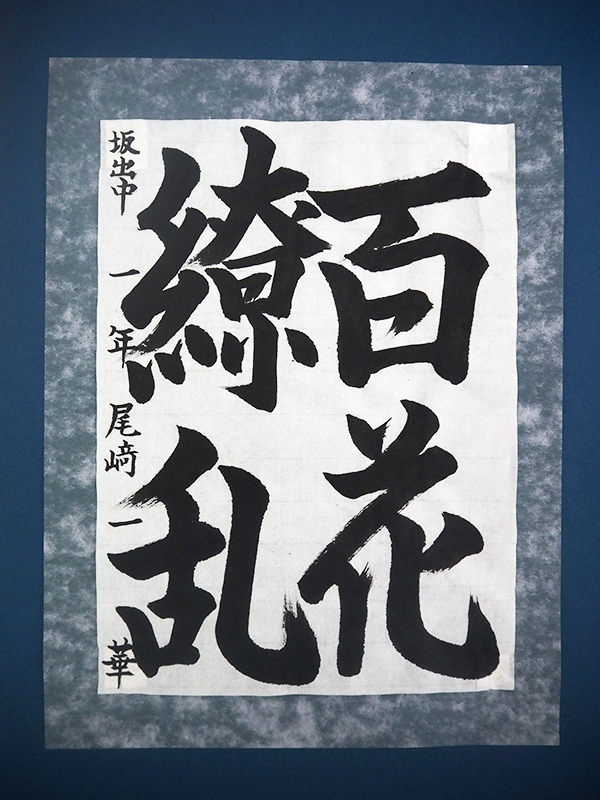 百花
繚乱
坂出中 一年 尾﨑一華